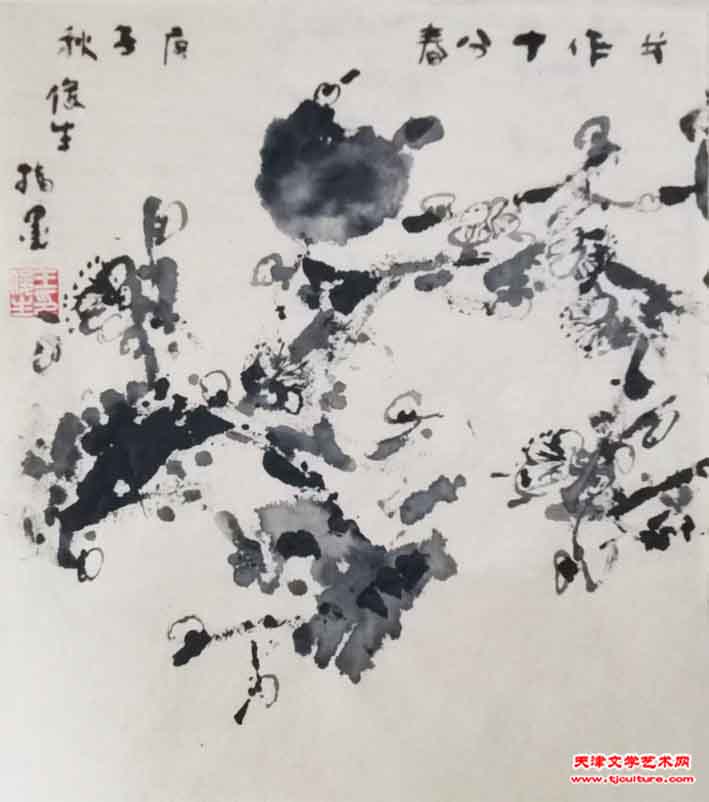 并作十分春
庚子秋
俊生
指墨
天津文学艺术网
www.tjculture.com